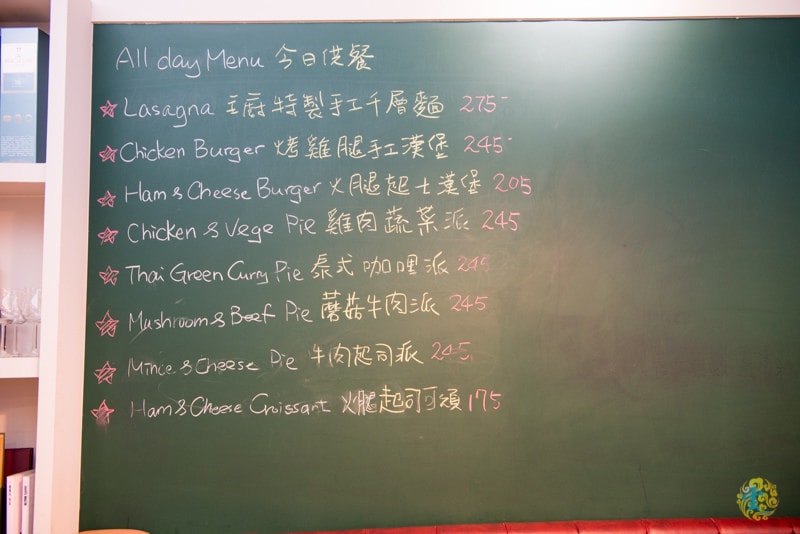 All day Menu 今日供餐
Lasagna 主廚特製手工千層麵 275
Chicken Burger 烤雞腿手工漢堡 245
Ham & Cheese Burger 火腿起士漢堡 205
Chicken & Vege Pie 雞肉蔬菜派 245
Thai Green Curry Pie 泰式咖哩派 245
Mushroom & Beef Pie 蘑菇牛肉派 245
Mince & Cheese Pie 牛肉起司派 245
Ham & Cheese Croissant 火腿起司可頌 175